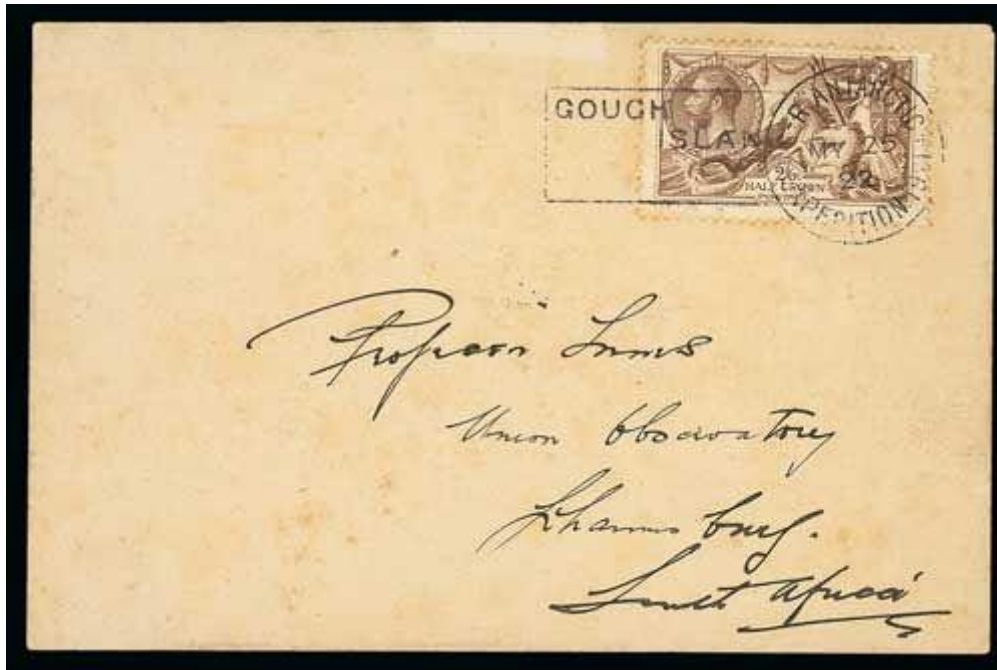 GOUGH
ISLAND
ANTARCTIC
MY 25
22
EXPEDITION
2/6
HALF CROWN
Professor Innes
Union Observatory
Johannesburg.
South Africa